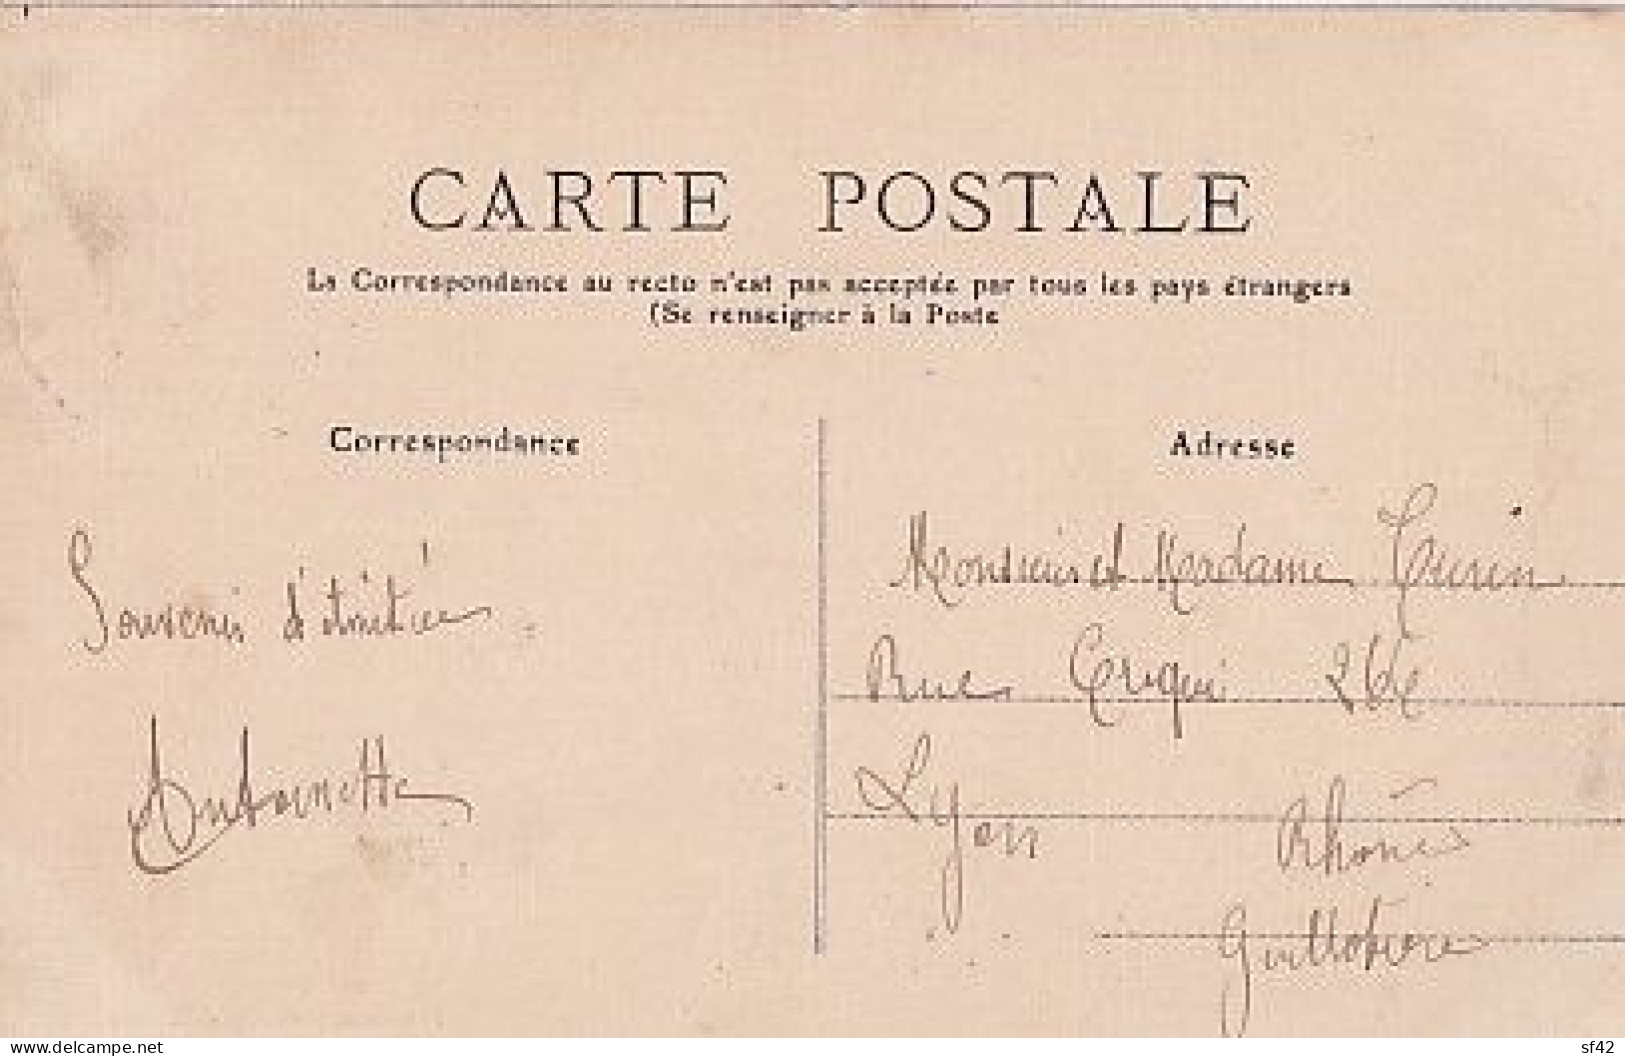 CARTE POSTALE
La Correspondance au recto n'est pas acceptée par tous les pays étrangers
(Se renseigner à la Poste
Correspondance
Souvenir d'amitié
Antoinette
Adresse
Monsieur et Madame
Rue Créqui
Lyon Rhône
Guillotière
www.delcampe.net
sf42